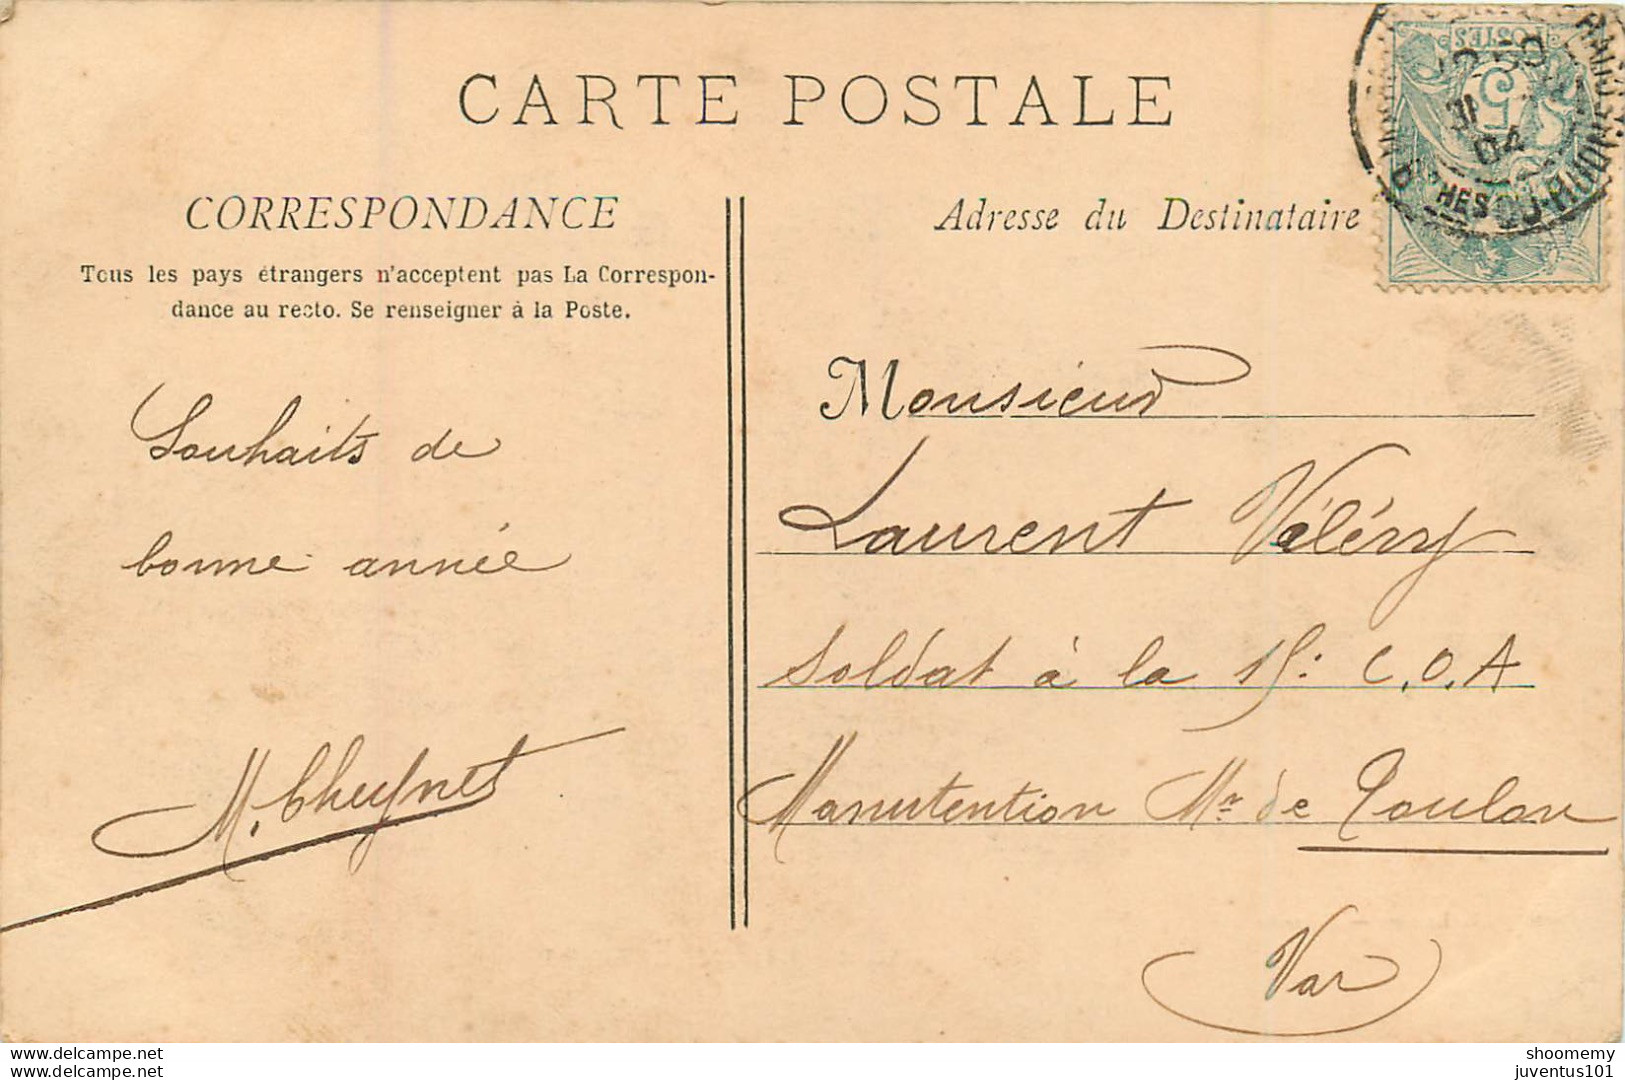 CARTE POSTALE
CORRESPONDANCE
Tous les pays étrangers n'acceptent pas La Correspon-
dance au recto. Se renseigner à la Poste.
Souhaits de
bonne année
M. Cheynet
Adresse du Destinataire
POSTES
5
31
04
Monsieur
Laurent Valéry
Soldat à la 15: C.O.A
Manutention Mre de Toulon
(Var)
www.delcampe.net
www.delcampe.net
shoomemy
juventus101